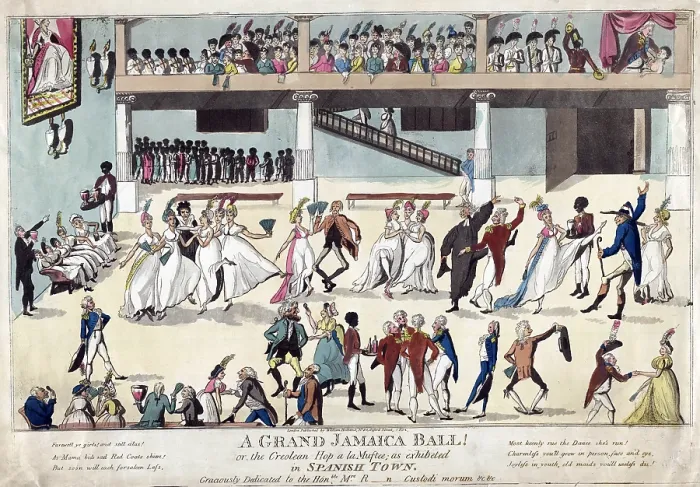 London Published by William Holland
A GRAND JAMAICA BALL!
or, the Creolean Hop a la Muftee; as exhibited
in SPANISH TOWN.
Graciously Dedicated to the Honble. Mrs. R__n Custodi morum &c &c
Farewell, ye girls! and still alas!
As Mama bids each Red Coats shun!
But soon will each forsaken Lass,
Most keenly rue the Dance she's run!
Charmless you'll grow in person, face and eye,
Joyless in youth, old maids you'll useless die!